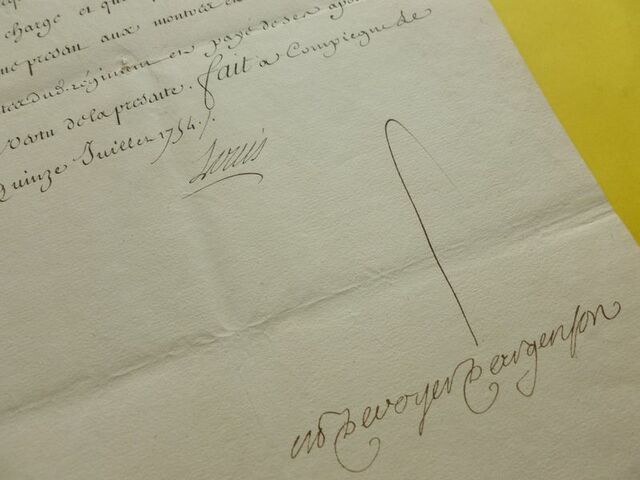 charge et que
presant aux montres et
regiment et payé de ses apo
Vertu de la presante. fait a Compiegne le
Quinze Juillet 1754.
Louis
M P De voyer D'argenson